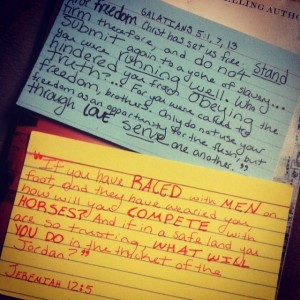 LLING AUTHO
GALATIANS 5:1, 7, 13
"For freedom Christ has set us free. Stand
firm therefore, and do not
Submit again to a yoke of slavery...
you were running well. Who
hindered you from obeying the
truth?... For you were called to
freedom, brothers. Only do not use your
freedom as an opportunity for the flesh, but
through love serve one another."
"If you have RACED with MEN on
foot, and they have wearied you,
how will you COMPETE with
HORSES? And if in a safe land you
are so trusting, WHAT WILL
YOU DO in the thicket of the
Jordan?"
JEREMIAH 12:5